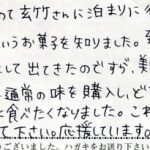 めて玄竹さんに泊まりに
いうお菓子を知りました。
して出てきたのですが、美
通常の味を購入し、ど
を食べたくなりました。これ
て下さい。応援しています。
うございました。ハガキをお送り下さい